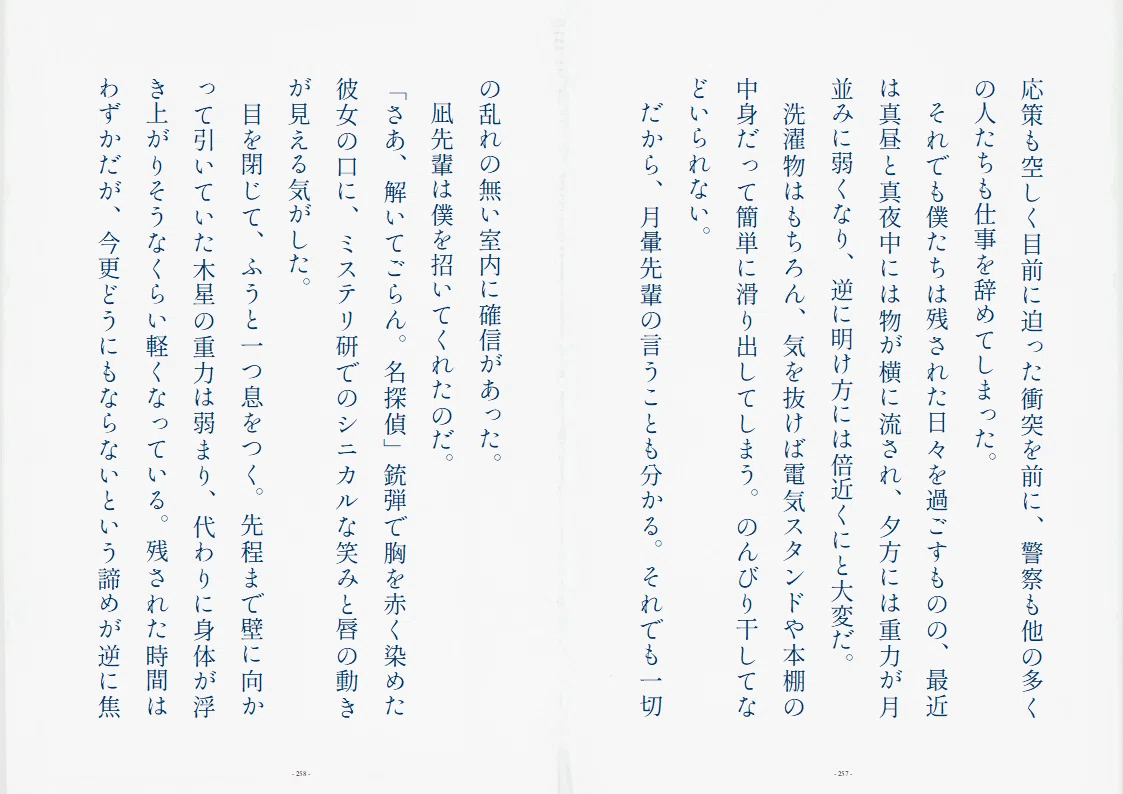 応策も空しく目前に迫った衝突を前に、警察も他の多く
の人たちも仕事を辞めてしまった。
それでも僕たちは残された日々を過ごすものの、最近
は真昼と真夜中には物が横に流され、夕方には重力が月
並みに弱くなり、逆に明け方には倍近くにと大変だ。
洗濯物はもちろん、気を抜けば電気スタンドや本棚の
中身だって簡単に滑り出してしまう。のんびり干してな
どいられない。
だから、月暈先輩の言うことも分かる。それでも一切
- 257 -
の乱れの無い室内に確信があった。
凪先輩は僕を招いてくれたのだ。
「さあ、解いてごらん。名探偵」銃弾で胸を赤く染めた
彼女の口に、ミステリ研でのシニカルな笑みと唇の動き
が見える気がした。
目を閉じて、ふうと一つ息をつく。先程まで壁に向か
って引いていた木星の重力は弱まり、代わりに身体が浮
き上がりそうなくらい軽くなっている。残された時間は
わずかだが、今更どうにもならないという諦めが逆に焦
- 258 -